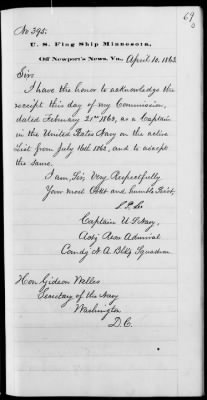 69
No 395.
U. S. Flag Ship Minnesota,
Off Newport's News, Va., April 10. 1863
Sir:
I have the honor to acknowledge the
receipt this day of my Commission,
dated February 21st 1863, as a Captain
in the United States Navy on the active
List from July 16th 1862, and to accept
the same.
I am, Sir, Very Respectfully
Your most Obdt and humble Servt,
S P Lee
Captain U. S. Navy,
Actg Rear Admiral
Comdg N. A. Blkg Squadron.
Hon Gideon Welles
Secretary of the Navy
Washington
D. C.